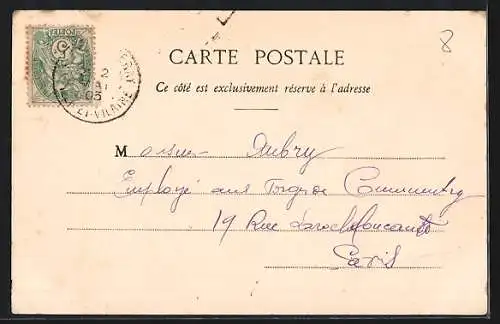 8
CARTE POSTALE
Ce côté est exclusivement réservé à l'adresse
POSTES
2
03
ET-VILAINE
Monsieur Aubry
Employé aux Forges de Commentry
19 Rue Larochefoucauld
Paris